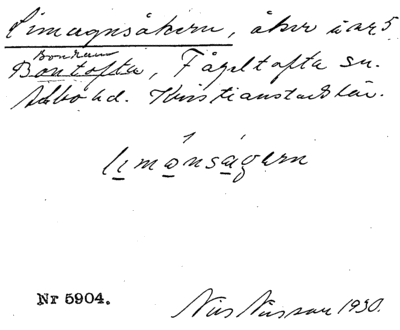 Limagnsåkern, åker å ar 5
Bondrum
Bontofta, Fågeltofta sn.
Albo hd. Kristianstads län.
limånságern
Nr 5904.
Nils Nilsson 1930.